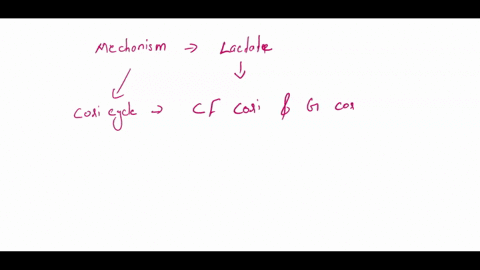 Mechonism → Lactate
↓
Cori cycle → CF Cori & G cor